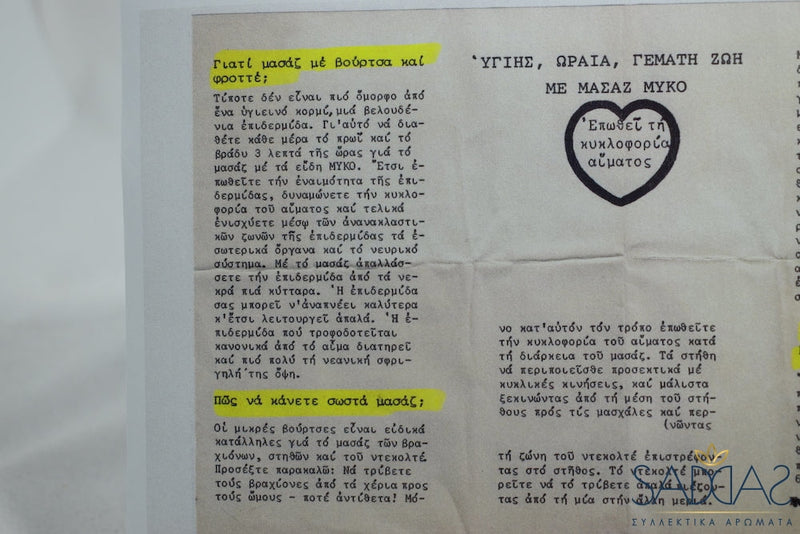 Γιατί μασάζ μέ βούρτσα καί
φροττέ;
Τίποτε δέν εἶναι πιό ὄμορφο ἀπό
ἕνα ὑγιεινό κορμί,μιά βελουδέ-
νια ἐπιδερμίδα. Γι'αὐτό νά δια-
θέτε κάθε μέρα τό πρωΐ καί τό
βράδυ 3 λεπτά τῆς ὥρας γιά τό
μασάζ μέ τά εἴδη ΜΥΚΟ. Ἔτσι ἐ-
πωθεῖτε τήν ἐναιμότητα τῆς ἐπι-
δερμίδας, δυναμώνετε τήν κυκλο-
φορία τοῦ αἵματος καί τελικά
ἐνισχύετε μέσῳ τῶν ἀνανακλαστι-
κῶν ζωνῶν τῆς ἐπιδερμίδας τά ἐ-
σωτερικά ὄργανα καί τό νευρικό
σύστημα. Μέ τό μασάζ ἀπαλλάσ-
σετε τήν ἐπιδερμίδα ἀπό τά νε-
κρά πιά κύτταρα. Ἡ ἐπιδερμίδα
σας μπορεῖ ν'ἀναπνέει καλύτερα
κ'ἔτσι λειτουργεῖ ἁπαλά. Ἡ ἐ-
πιδερμίδα πού τροφοδοτεῖται
κανονικά ἀπό τό αἷμα διατηρεῖ
καί πιό πολύ τή νεανική σφρι-
γηλή της ὄψη.
Πῶς νά κάνετε σωστά μασάζ;
Οἱ μικρές βοῦρτσες εἶναι εἰδικά
κατάλληλες γιά τό μασάζ τῶν βρα-
χιόνων, στηθῶν καί τοῦ ντεκολτέ.
Προσέξτε παρακαλῶ: Νά τρίβετε
τούς βραχίονες ἀπό τά χέρια προς
τούς ὤμους - ποτέ ἀντίθετα! Μό-
ὙΓΙΗΣ, ΩΡΑΙΑ, ΓΕΜΑΤΗ ΖΩΗ
ΜΕ ΜΑΣΑΖ ΜΥΚΟ
Ἐπωθεῖ τή
κυκλοφορία
αἵματος
νο κατ'αὐτόν τόν τρόπο ἐπωθεῖτε
τήν κυκλοφορία τοῦ αἵματος κατά
τή διάρκεια τοῦ μασάζ. Τά στήθη
νά περιποιεῖσθε προσεκτικά μέ
κυκλικές κινήσεις, καί μάλιστα
ξεκινώντας ἀπό τή μέση τοῦ στή-
θους πρός τίς μασχάλες καί περ-
(νῶντας
τή ζώνη τοῦ ντεκολτέ ἐπιστρέφον-
τας στό στῆθος. Τό ντεκολτέ μπο-
ρεῖτε νά τό τρίβετε ἁπαλά πιέζον-
τας ἀπό τή μία στήν ἄλλη μεριά.
SADDAS
ΣΥΛΛΕΚΤΙΚΑ ΑΡΩΜΑΤΑ